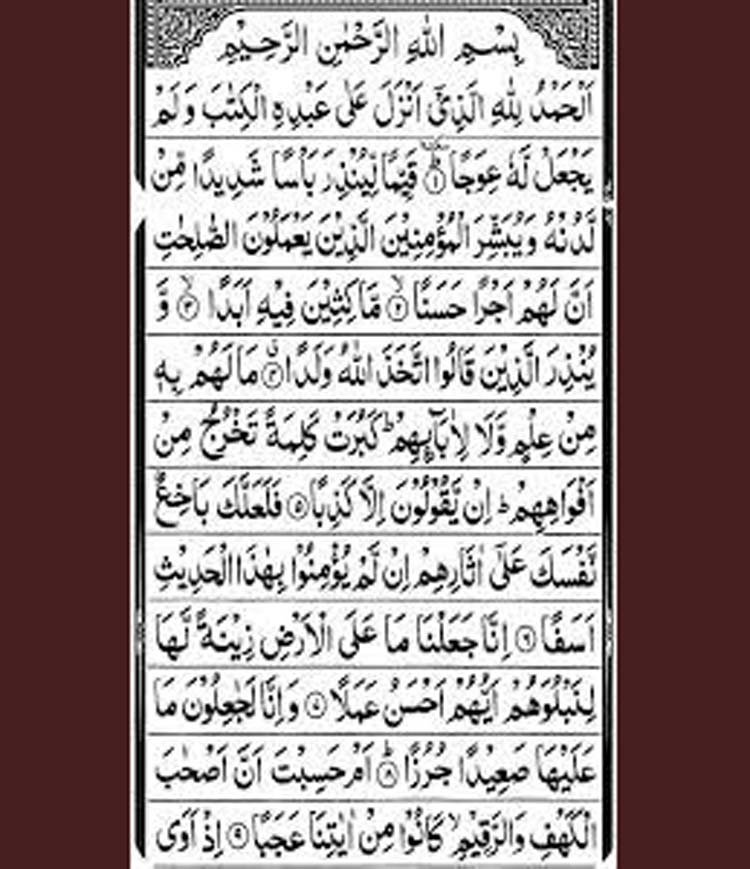 بِسْمِ اللهِ الرَّحْمٰنِ الرَّحِيْمِ
اَلْحَمْدُ لِلّٰهِ الَّذِيْٓ اَنْزَلَ عَلٰى عَبْدِهِ الْكِتٰبَ وَلَمْ
يَجْعَلْ لَّهٗ عِوَجًا ۜ ﴿۱﴾ قَيِّمًا لِّيُنْذِرَ بَاْسًا شَدِيْدًا مِّنْ
لَّدُنْهُ وَيُبَشِّرَ الْمُؤْمِنِيْنَ الَّذِيْنَ يَعْمَلُوْنَ الصّٰلِحٰتِ
اَنَّ لَهُمْ اَجْرًا حَسَنًا ۙ﴿۲﴾ مَّاكِثِيْنَ فِيْهِ اَبَدًا ۙ﴿۳﴾ وَّ
يُنْذِرَ الَّذِيْنَ قَالُوا اتَّخَذَ اللهُ وَلَدًا ۙ﴿۴﴾ مَا لَهُمْ بِهٖ
مِنْ عِلْمٍ وَّلَا لِاٰبَآئِهِمْ ؕ كَبُرَتْ كَلِمَةً تَخْرُجُ مِنْ
اَفْوَاهِهِمْ ؕ اِنْ يَّقُوْلُوْنَ اِلَّا كَذِبًا ﴿۵﴾ فَلَعَلَّكَ بَاخِعٌ
نَّفْسَكَ عَلٰٓى اٰثَارِهِمْ اِنْ لَّمْ يُؤْمِنُوْا بِهٰذَا الْحَدِيْثِ
اَسَفًا ﴿۶﴾ اِنَّا جَعَلْنَا مَا عَلَى الْاَرْضِ زِيْنَةً لَّهَا
لِنَبْلُوَهُمْ اَيُّهُمْ اَحْسَنُ عَمَلًا ﴿۷﴾ وَاِنَّا لَجٰعِلُوْنَ مَا
عَلَيْهَا صَعِيْدًا جُرُزًا ؕ﴿۸﴾ اَمْ حَسِبْتَ اَنَّ اَصْحٰبَ
الْكَهْفِ وَالرَّقِيْمِ ۙ كَانُوْا مِنْ اٰيٰتِنَا عَجَبًا ﴿۹﴾ اِذْ اَوَى